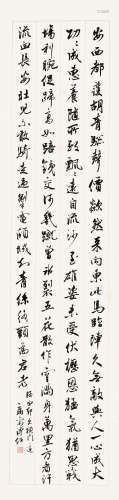 安西都護胡青驄聲價欻然來向東此馬臨陣久無敵與人一心成大
功〻成惠養隨所致飄〻遠自流沙至雄姿未受伏櫪恩猛氣猶思戰
場利腕促蹄高如踣鐵交河幾蹴曾冰裂五花散作雲滿身萬里方看汗
流血長安壯兒不敢騎走過掣電傾城知青絲絡頭為君老
何由卻出橫門道